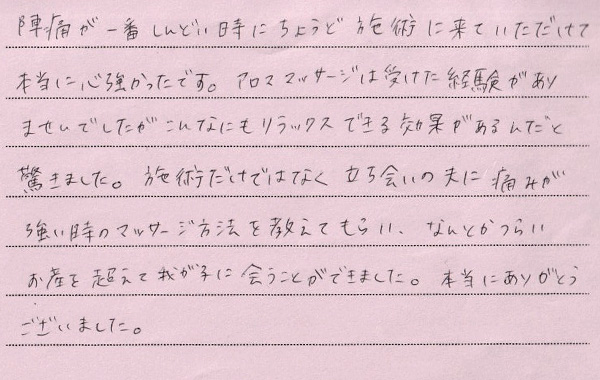 陣痛が一番しんどい時にちょうど施術に来ていただけて
本当に心強かったです。アロママッサージは受けた経験があり
ませんでしたがこんなにもリラックスできる効果があるんだと
驚きました。施術だけではなく立ち会いの夫に痛みが
強い時のマッサージ方法を教えてもらい、なんとかつらい
お産を超えて我が子に会うことができました。本当にありがとう
ございました。